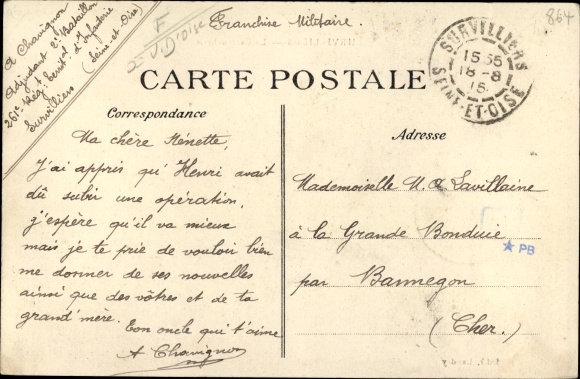 A Chavignon
Adjudant 2e Bataillon
261e Rég. Territ. d'Infanterie
Survilliers
(Seine et Oise)
F
2 - V. D'OISE
Franchise Militaire.
864
SURVILLIERS
15 35
18 - 8
15
SEINE-ET-OISE
CARTE POSTALE
Correspondance
Adresse
Ma chère Nénette,
J'ai appris qu'Henri avait
dû subir une opération,
j'espère qu'il va mieux
mais je te prie de vouloir bien
me donner de ses nouvelles
ainsi que des vôtres et de ta
grand'mère.
Ton oncle qui t'aime
A Chavignon
Mademoiselle M. A. Lavillaine
à la Grande Bonduie
PB
par Bannegon
(Cher.)